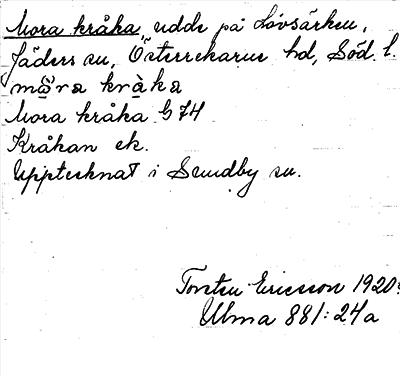 Mora kråka, udde på Lövsärken,
Jäders sn, Österrekarne hd, Söd. l.
Mora kråka G 74
Kråkan ek.
Upptecknat i Sundby sn.
Torsten Ericsson 1920
Ulma 881:24a